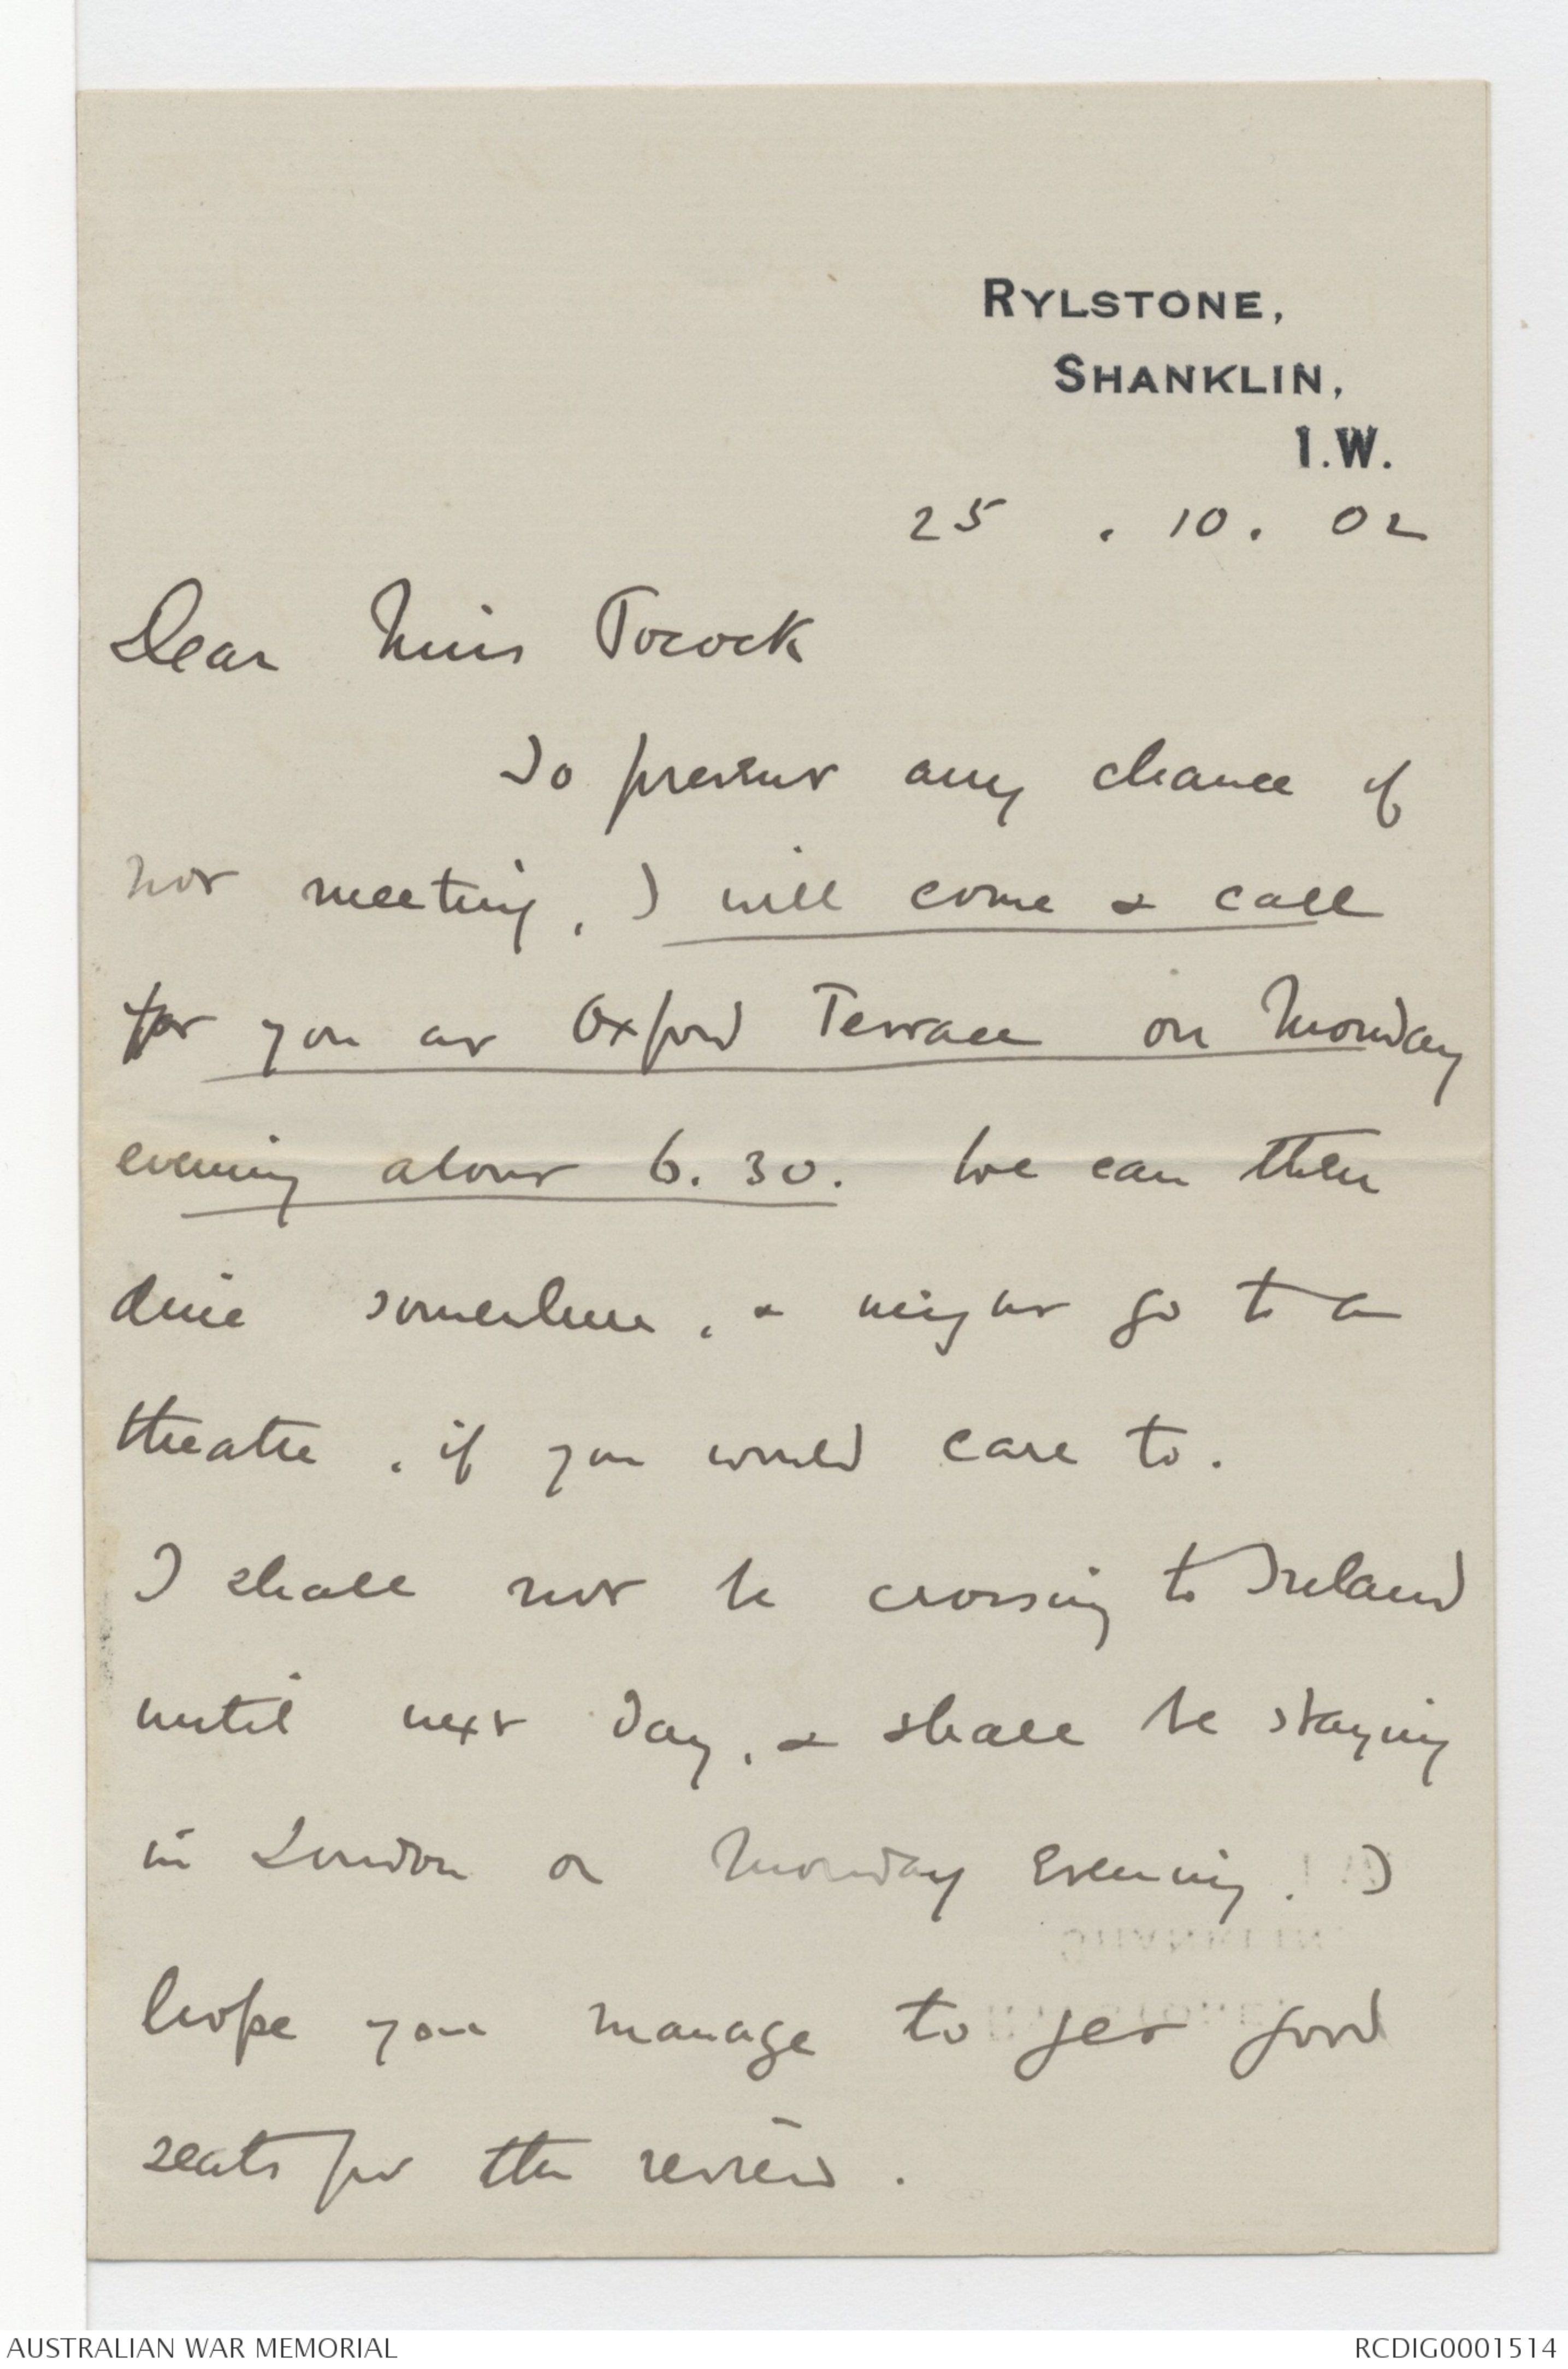 RYLSTONE,
SHANKLIN,
I.W.
25 . 10 . 02
Dear Miss Pocock
To prevent any chance of
not meeting, I will come & call
for you at Oxford Terrace on Monday
evening about 6.30. We can then
dine somewhere, & might go to a
theatre, if you would care to.
I shall not be crossing to Ireland
until next day, & shall be staying
in London on Monday evening. I
hope you manage to get good
seats for the review.
AUSTRALIAN WAR MEMORIAL
RCDIG0001514